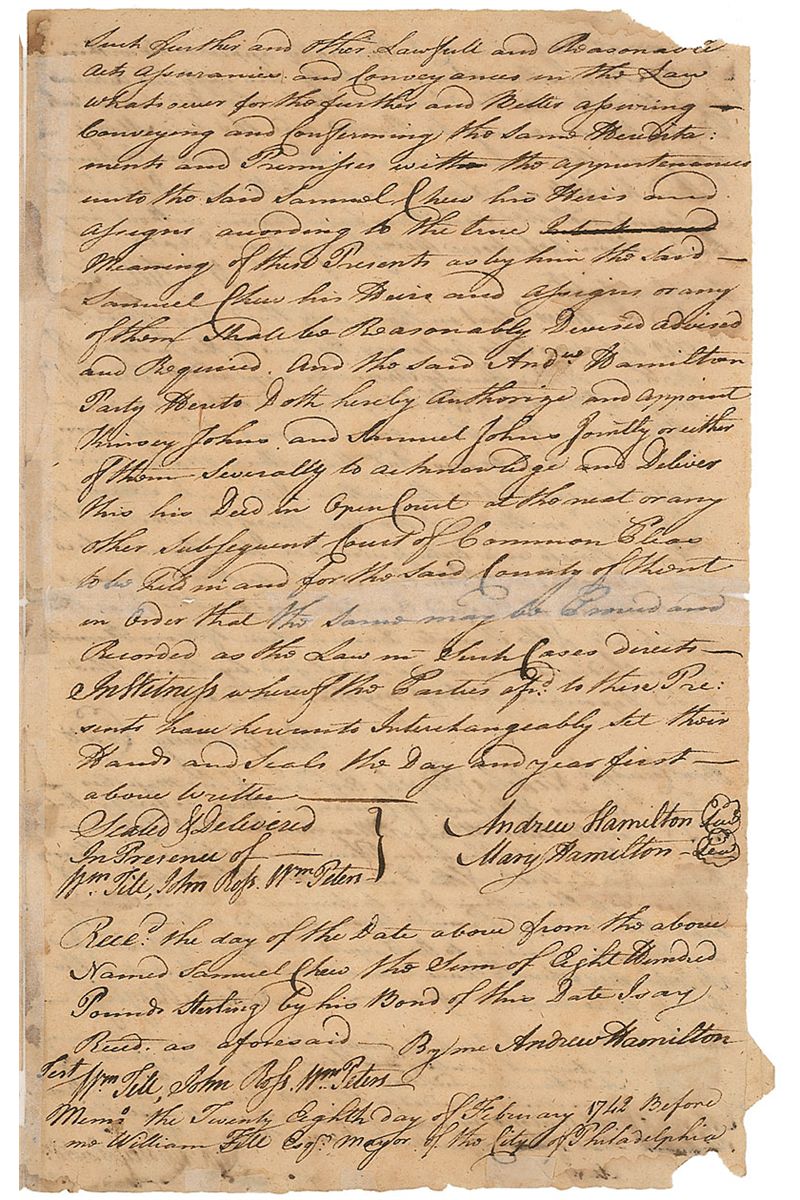 Such further and other Lawfull and Reasonable
Acts Assurances and Conveyances in the Law
whatsoever for the further and Better assuring —
Conveying and Confirming the same Heredita:
ments and Premisses with the appurtenances
unto the Said Samuel Chew his Heirs and
Assigns according to the true Intent and
Meaning of these Presents as by him the Said —
Samuel Chew his Heirs and Assigns or any
of them Shall be Reasonably Devised advised
and Required. And the said Andw. Hamilton
Party Hereto Doth hereby Authorize and appoint
Kinsey Johns and Samuel Johns Jointly or either
of them Severally to acknowledge and Deliver
this his Deed in Open Court at the next or any
other Subsequent Court of Common Pleas
to be held in and for the said County of Kent
in Order that the same may be Proved and
Recorded as the Law in Such Cases directs —
In Witness whereof the Parties afsd. to these Pre:
sents have hereunto Interchangeably Set their
Hands and Seals the Day and year first —
above written —
Sealed & Delivered
In Presence of —
Wm. Till, John Ross. Wm. Peters
Andrew Hamilton Seal
Mary Hamilton — Seal
Reced. the day of the Date above from the above
Named Samuel Chew the Sum of Eight Hundred
Pounds Sterling by his Bond of this Date I say
Reced. as aforesaid — By me Andrew Hamilton
Test Wm. Till, John Ross. Wm. Peters
Memo. the Twenty Eighth day of February 1742 Before
me William Till Esqr. Mayor of the City of Philadelphia